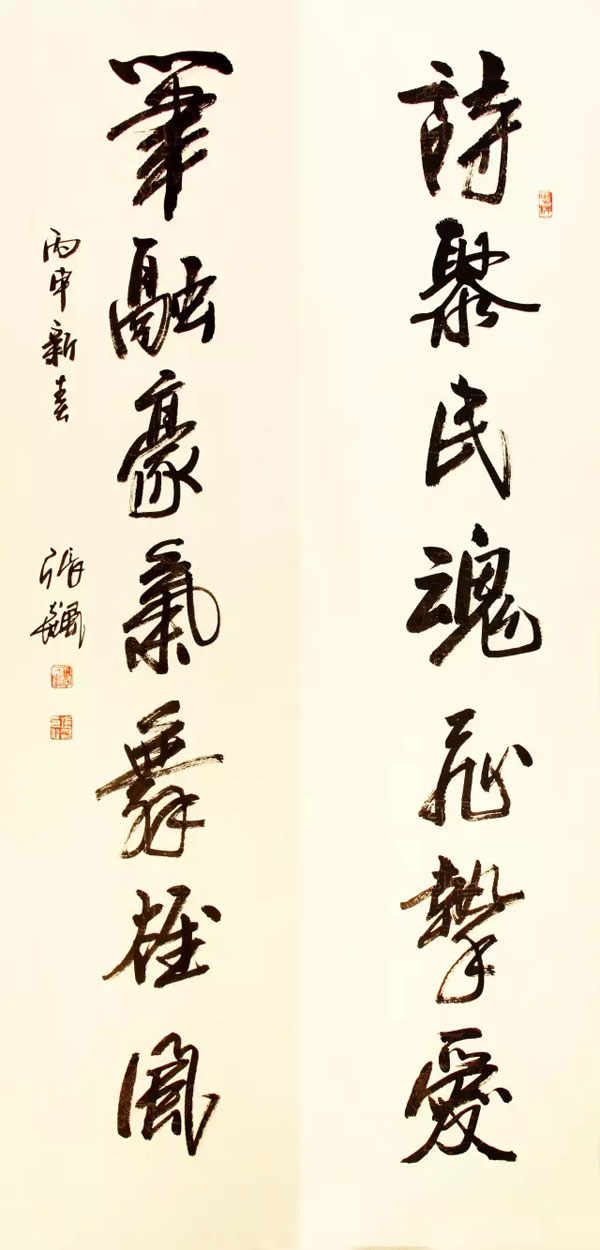 詩聚民魂飛摯愛
筆融豪氣舞雄風
丙申新春
張飆